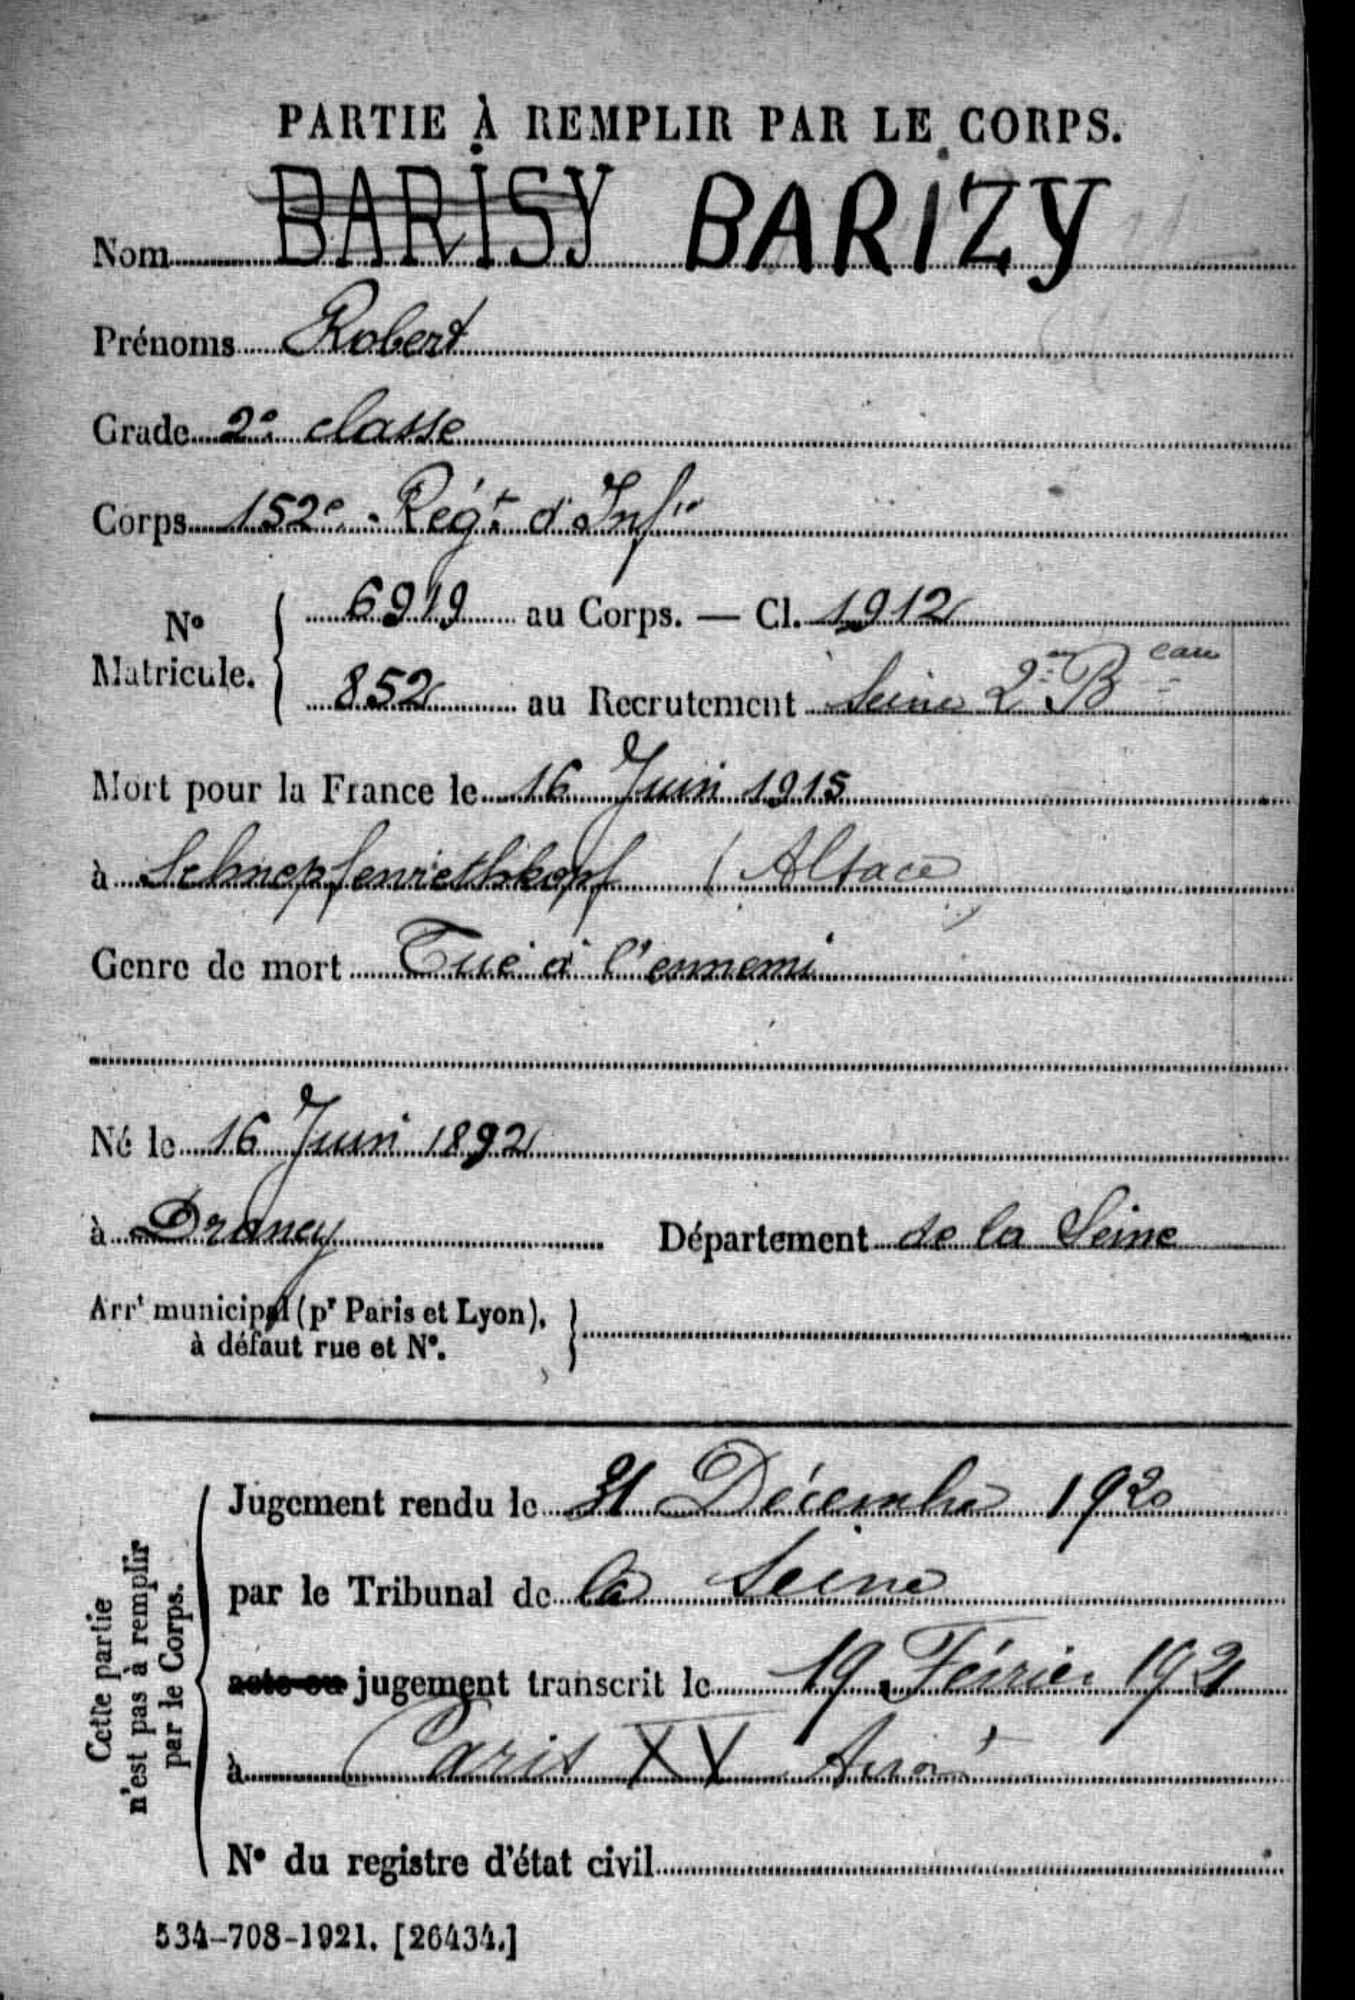 PARTIE À REMPLIR PAR LE CORPS.
Nom BARISY BARIZY
Prénoms Robert
Grade 2e classe
Corps 152e Régt d'Infie
No Matricule. 6919 au Corps. — Cl. 1912
852 au Recrutement Seine 2e Beau
Mort pour la France le 16 Juin 1915
à Schnepfenriethkopf (Alsace)
Genre de mort Tué à l'ennemi
Né le 16 Juin 1892
à Drancy Département de la Seine
Arrt municipal (pr Paris et Lyon),
à défaut rue et No.
Cette partie
n'est pas à remplir
par le Corps.
Jugement rendu le 31 Décembre 1920
par le Tribunal de la Seine
acte ou jugement transcrit le 19 Février 1921
à Paris XV Arrondt
No du registre d'état civil
534-708-1921. [26434.]